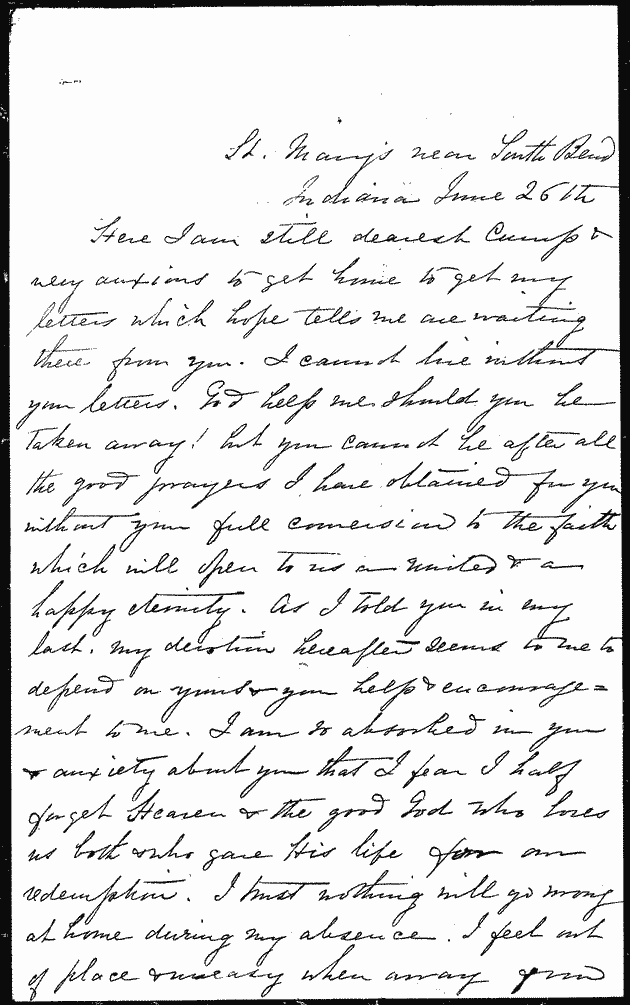 St. Mary's near South Bend
Indiana June 26th
Here I am still dearest Cump &
very anxious to get home to get my
letters which hope tells me are waiting
there from you. I cannot live without
your letters. God help me should you be
taken away! but you cannot be after all
the good prayers I have obtained for you
without your full conversion to the faith
which will open to us a united & a
happy eternity. As I told you in my
last. my devotion hereafter seems to me to
depend on yours & your help & encourage=
ment to me. I am so absorbed in you
& anxiety about you that I fear I half
forget Heaven & the good God who loves
us both & who gave His life for our
redemption. I trust nothing will go wrong
at home during my absence. I feel out
of place & uneasy when away